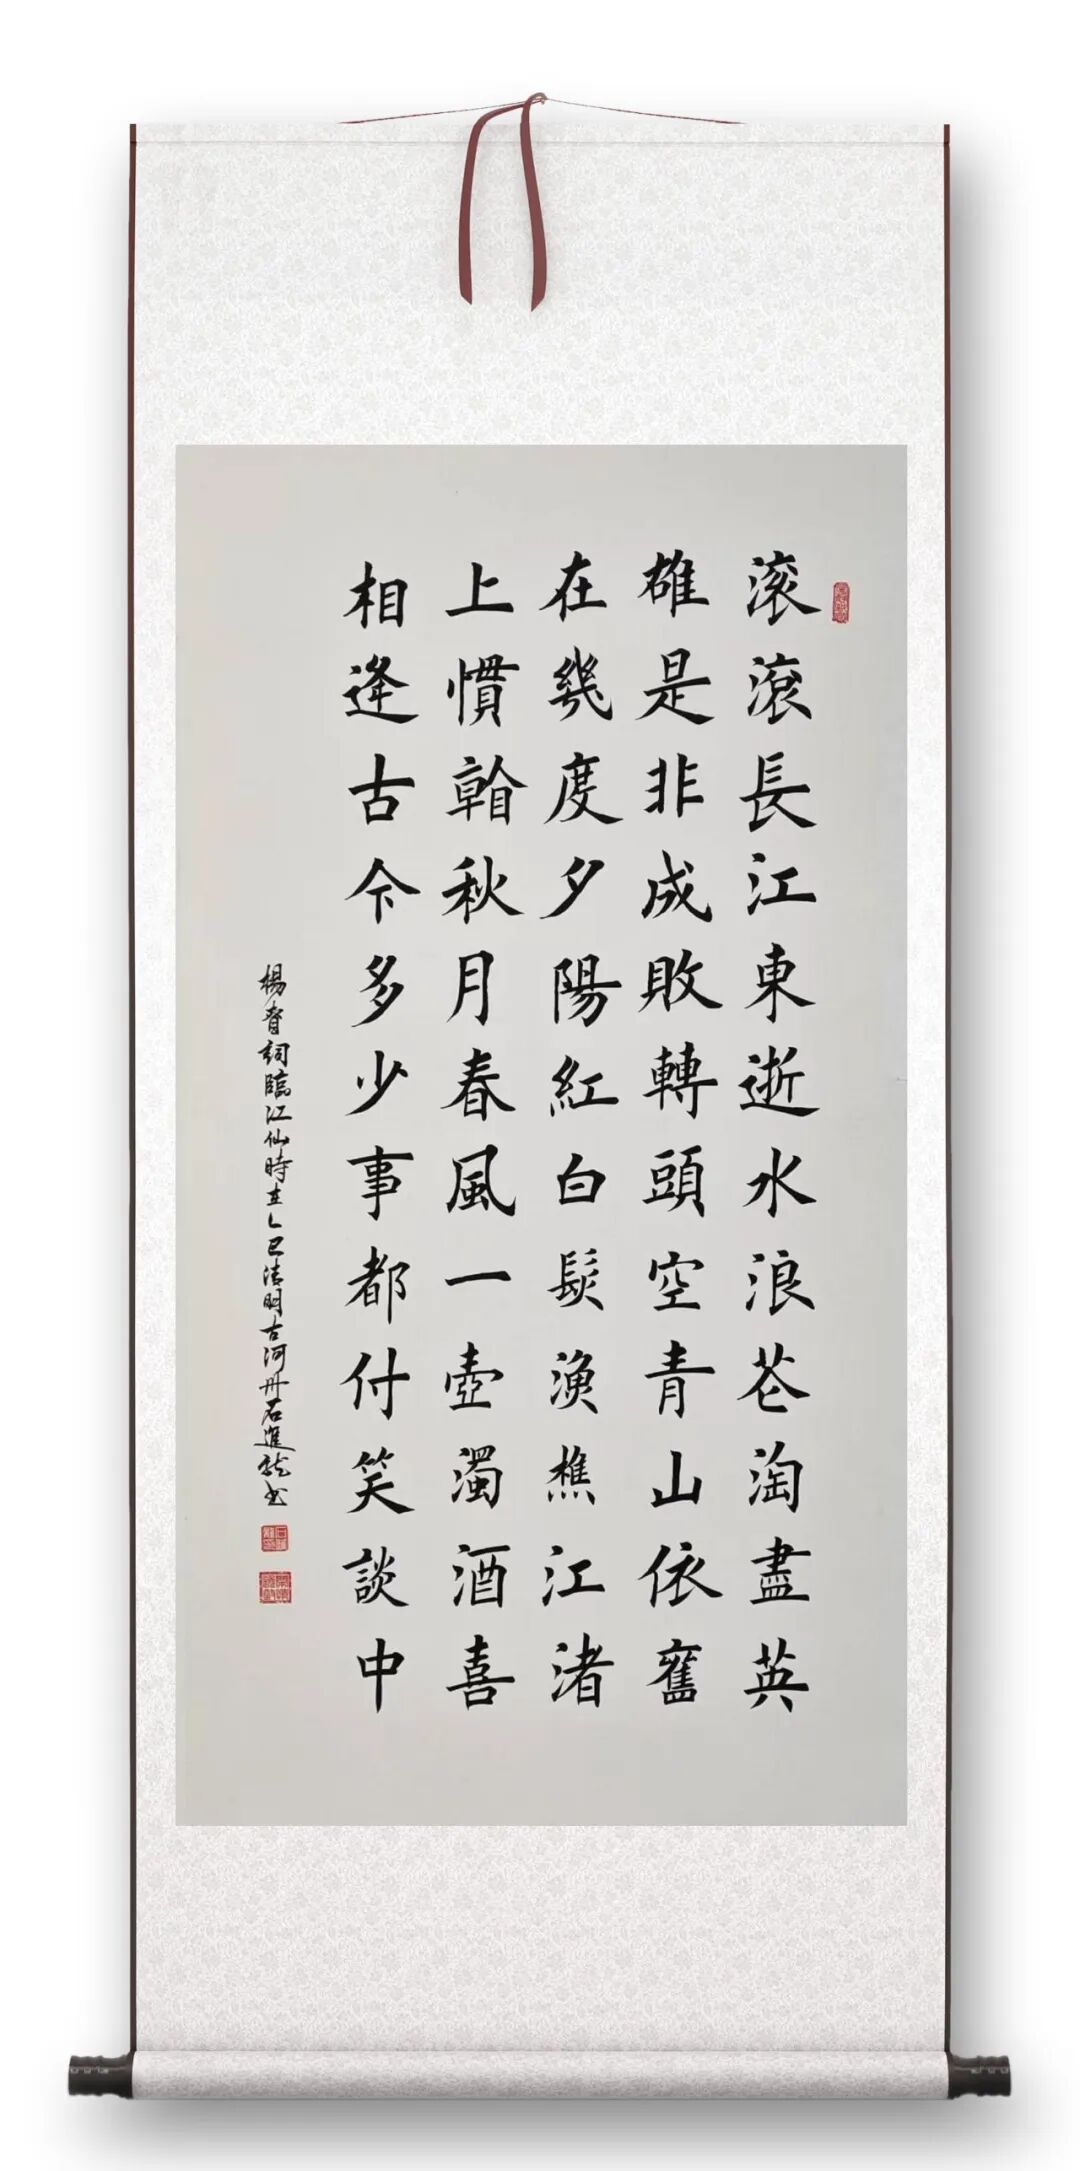 滚滾長江東逝水浪花淘盡英
雄是非成敗轉頭空青山依舊
在幾度夕陽紅白髮漁樵江渚
上慣看秋月春風一壺濁酒喜
相逢古今多少事都付笑談中
楊眘詞臨江仙時在乙巳清明古河州石進龍书